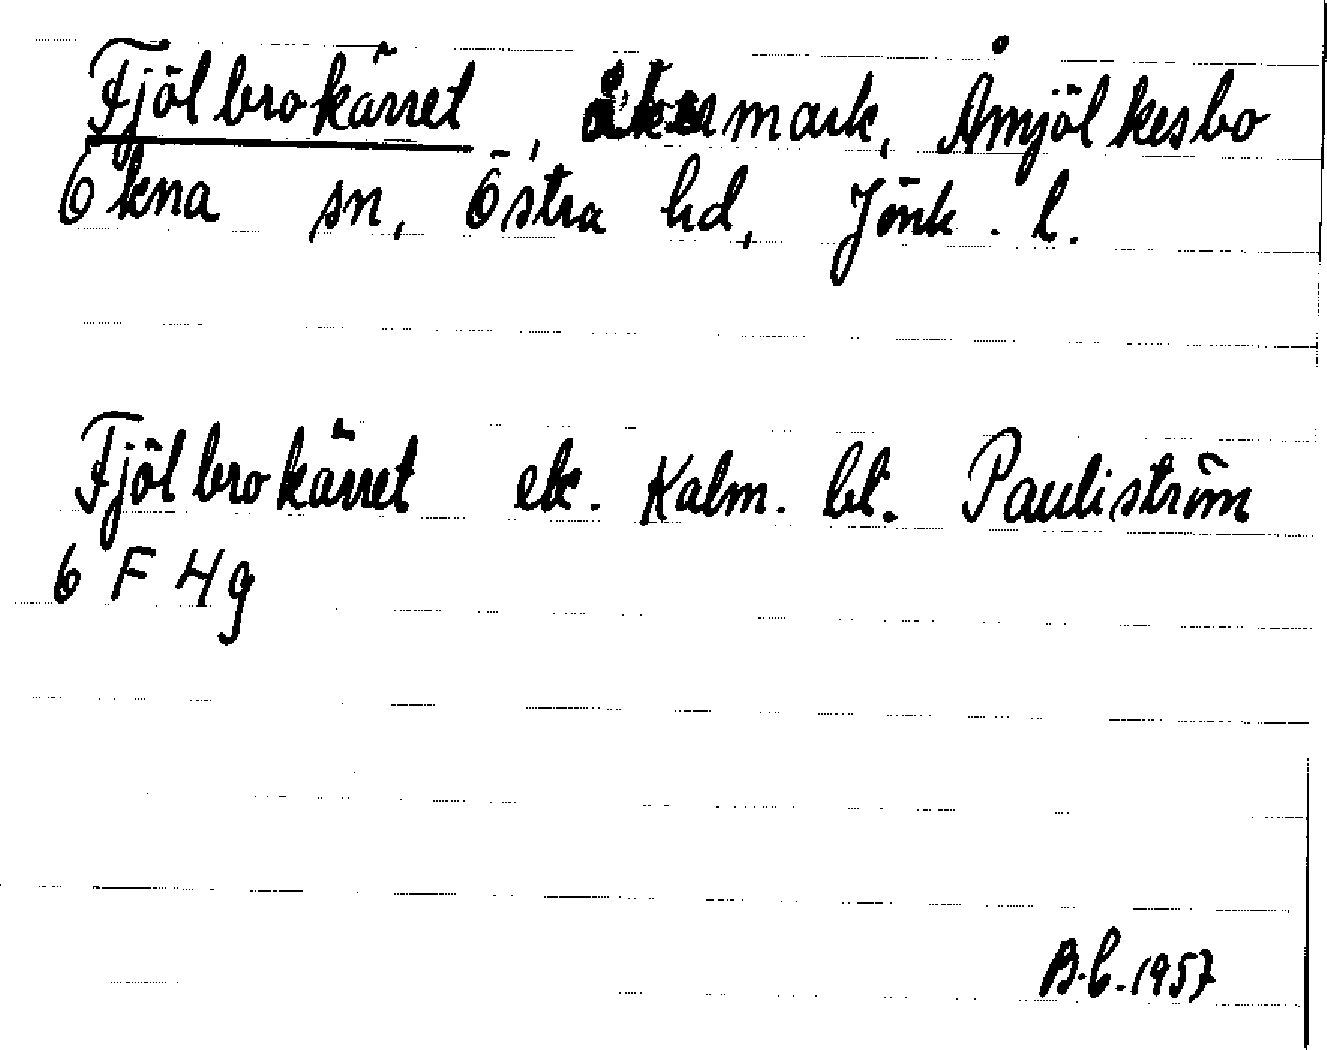 Fjölbrokärret, åkermark, Åmjölkesbo
Ökna sn, Östra hd, Jönk. l.
Fjölbrokärret ek. Kalm. bl. Pauliström
6 F 4g
B.b. 1957